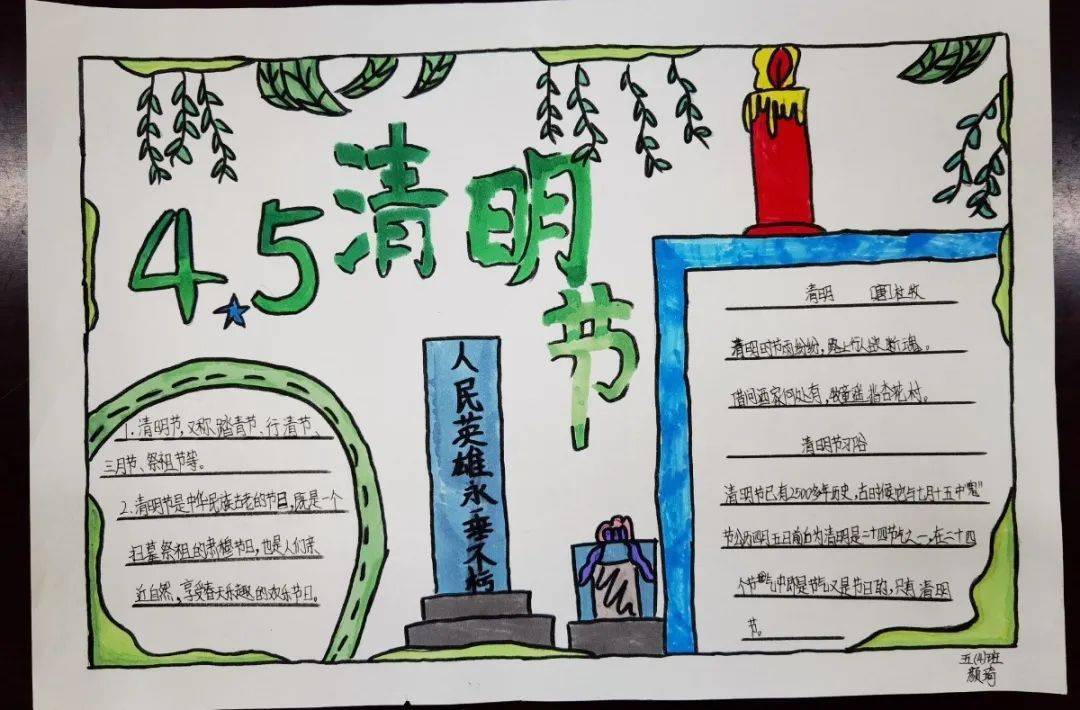 4.5清明节
1.清明节,又称踏青节、行清节、
三月节、祭祖节等。
2.清明节是中华民族古老的节日,既是一个
扫墓祭祖的肃穆节日,也是人们亲
近自然、享受春天乐趣的欢乐节日。
人民英雄永垂不朽
清明 [唐]杜牧
清明时节雨纷纷,路上行人欲断魂。
借问酒家何处有,牧童遥指杏花村。
清明节习俗
清明节已有2500多年历史,古时候它与七月十五中"鬼"
节公历四月五日前后为清明是二十四节气之一,在二十四
个节气中即是节气又是节日的,只有清明
节。
五(4)班
颜琦